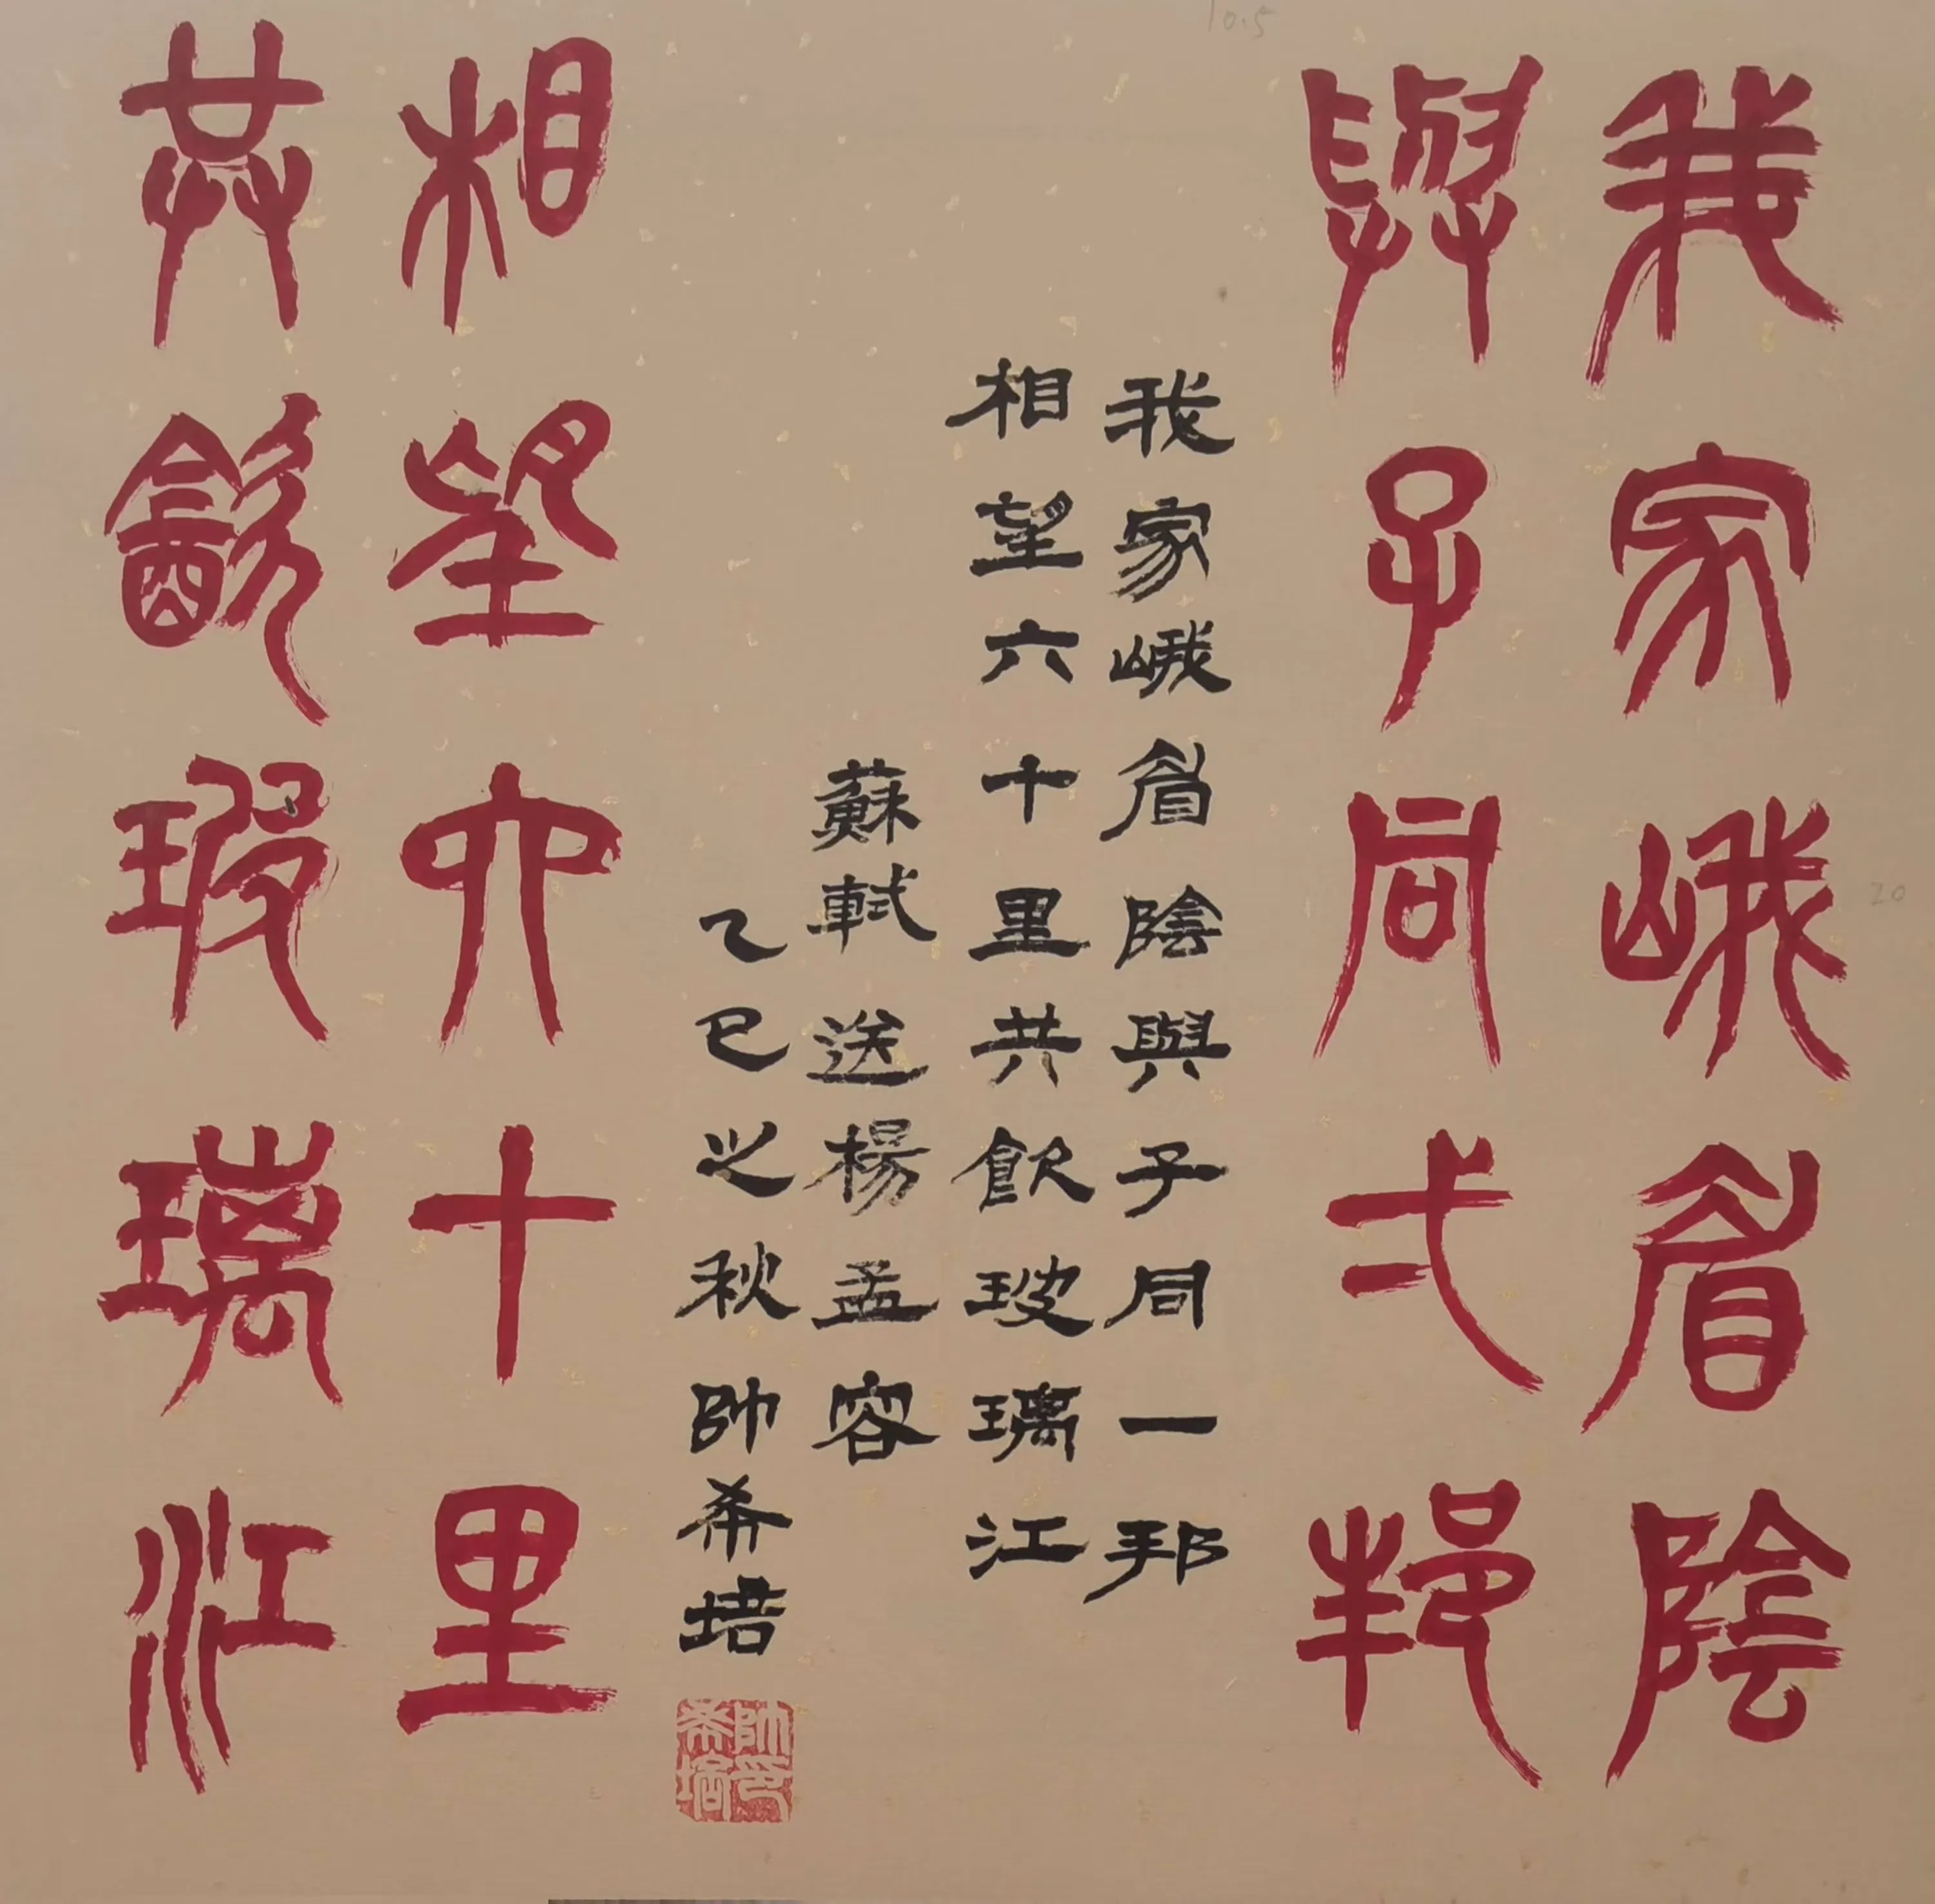 我家峨眉陰
與子同弌邦
我家峨眉陰與子同一邦
相望六十里共飲玻璃江
蘇軾送楊孟容
乙巳之秋帥希培
相望六十里
共㱃玻璃江
帥印希培
10.5
20